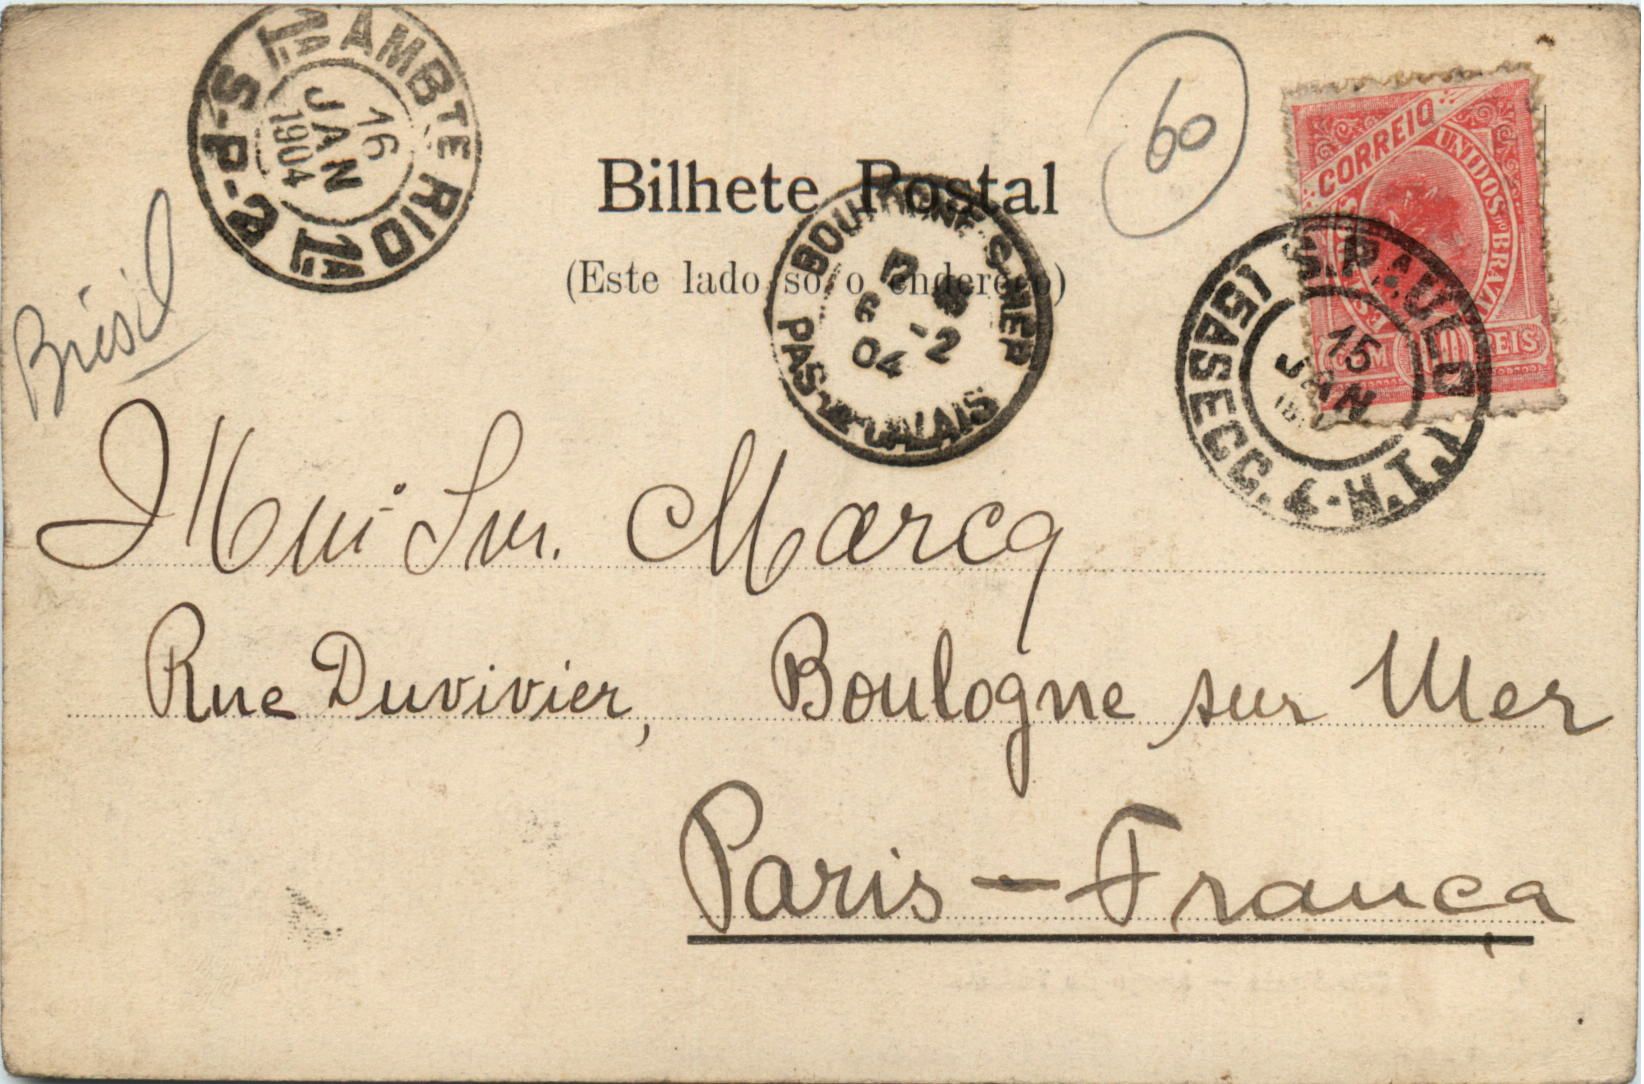 1ª AMBTE RIO 1ª S-P-2
16
JAN
1904
60
CORREIO
UNIDOS DO BRAZIL
CEM REIS
Bilhete Postal
(Este lado só o endereço)
BOULOGNE-S-MER
PAS-DE-CALAIS
6 -2
04
S. PAULO
(5ASECC. 4-H.T.)
15
JAN
Brésil
Snr. Marcq
Rue Duvivier, Boulogne sur Mer
Paris - França